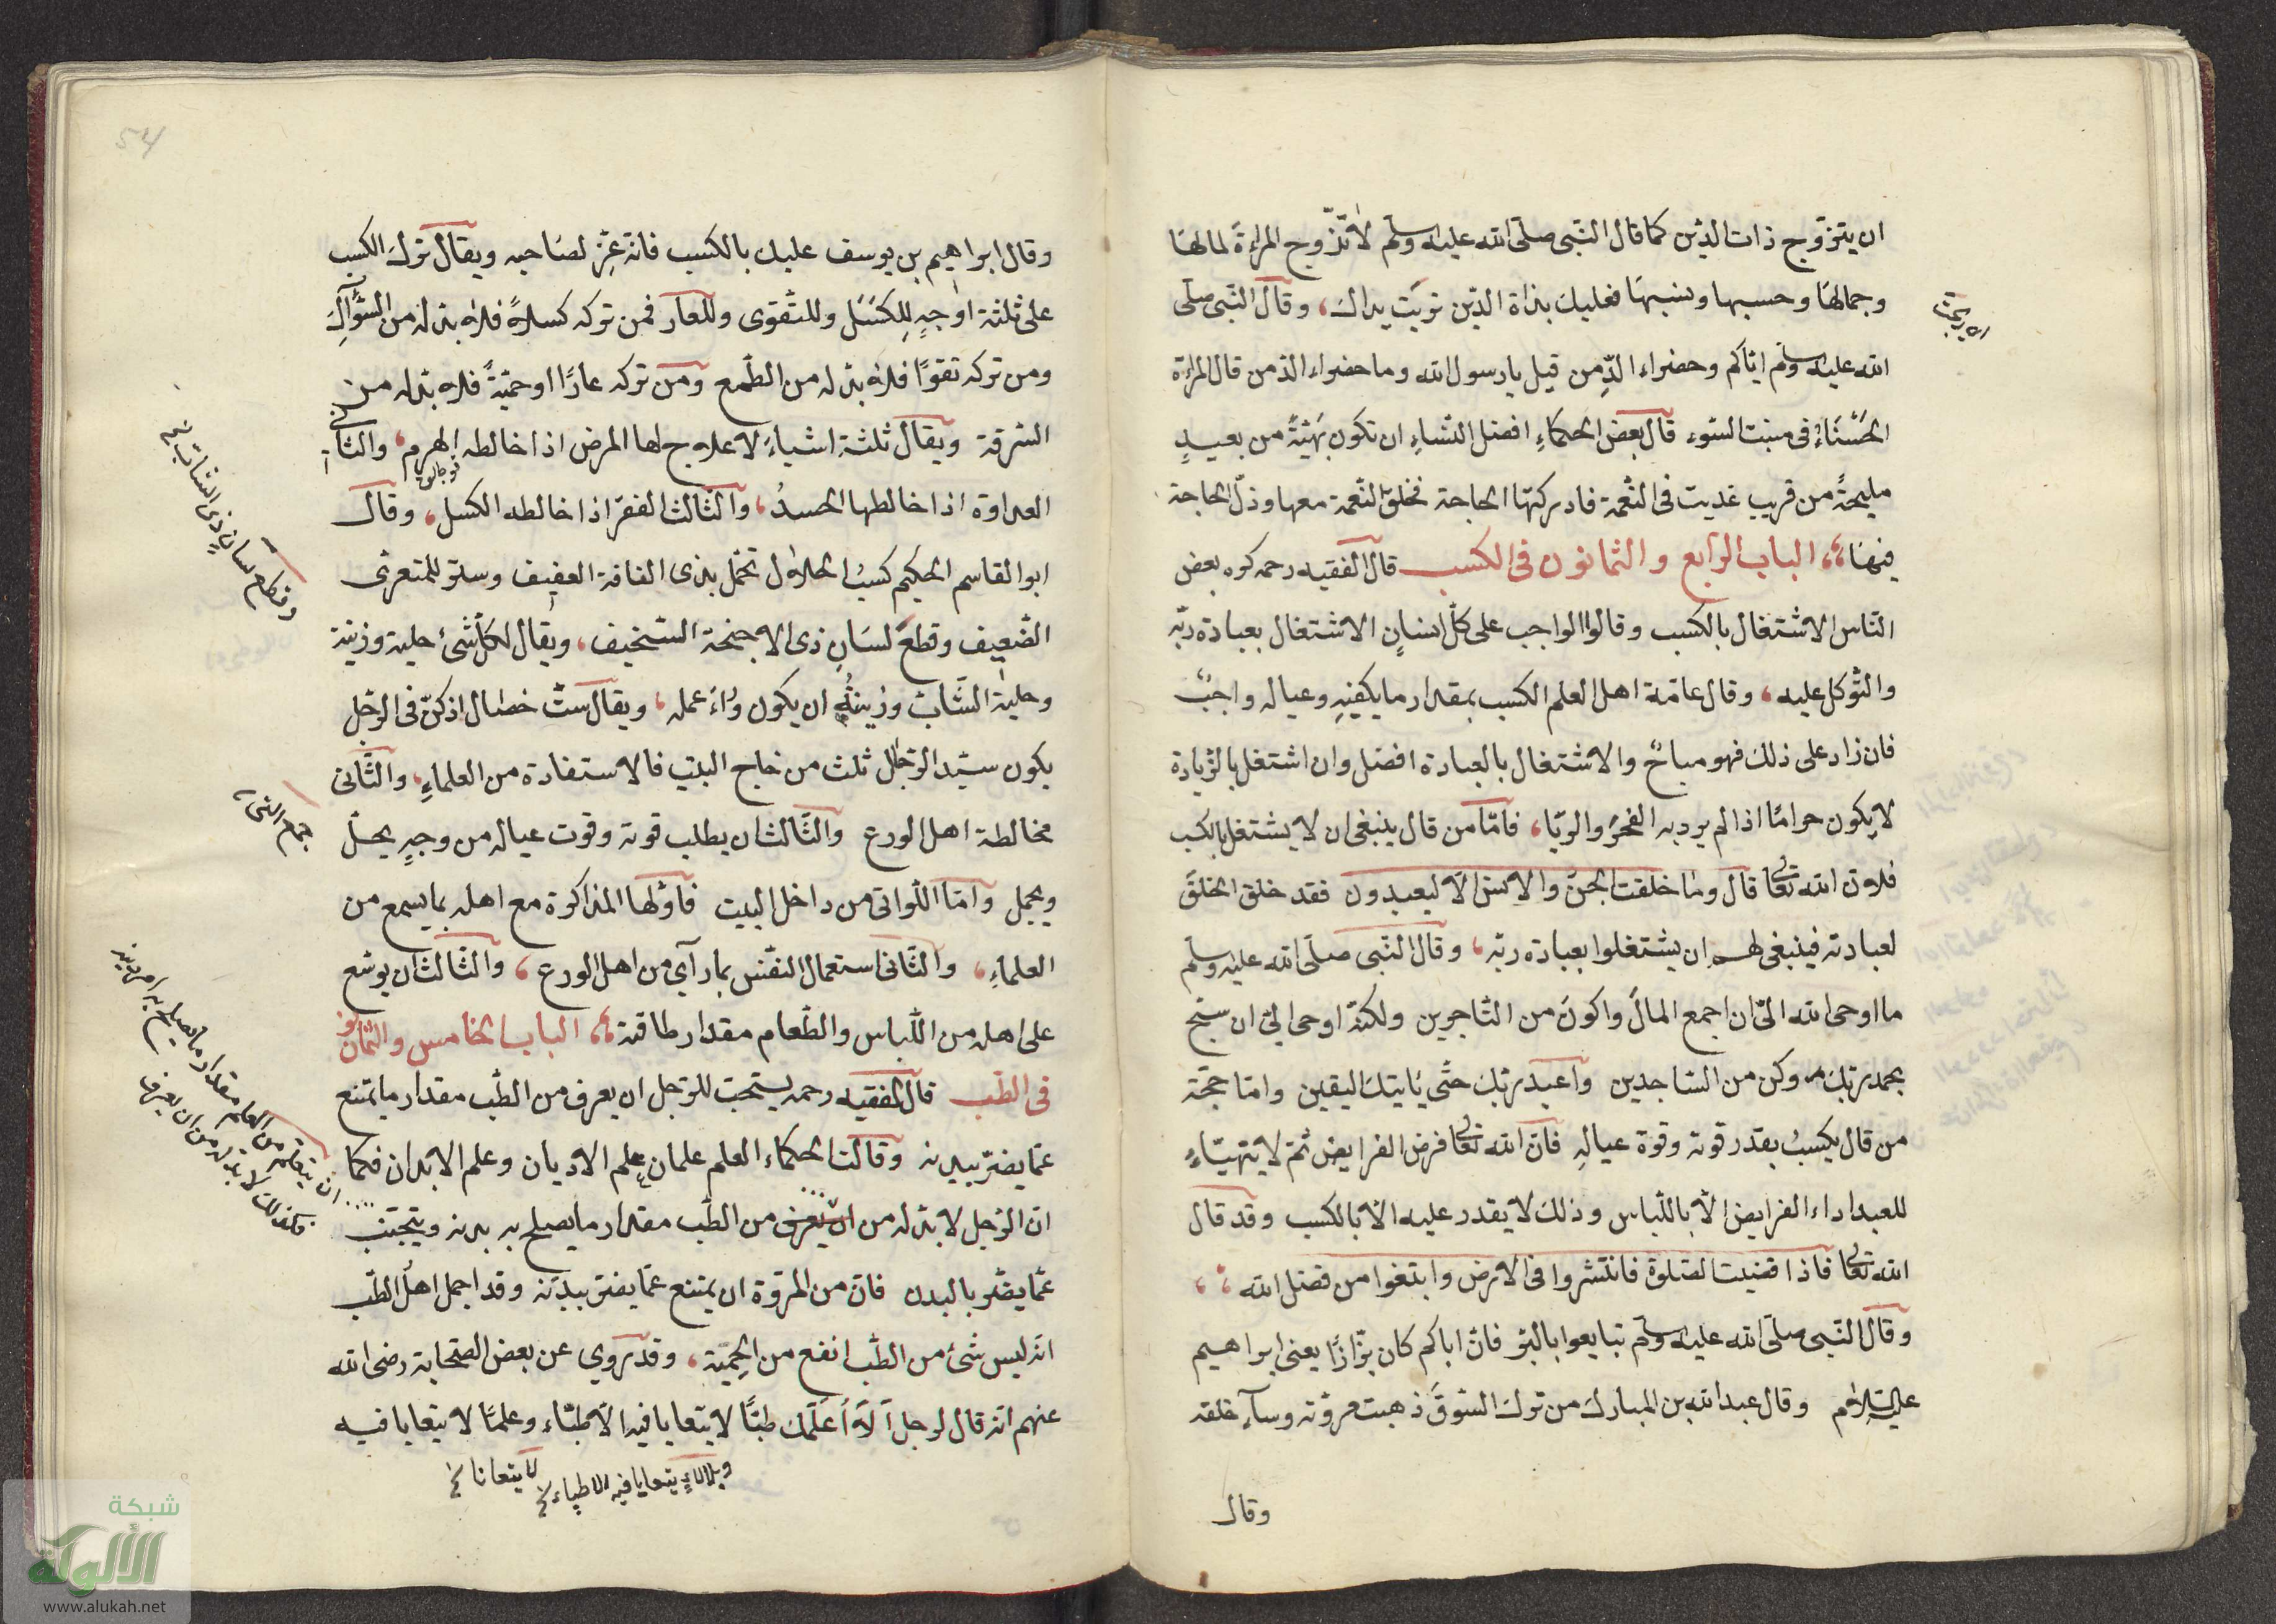 ان يتزوج ذات الدين كما قال النبى صلى الله عليه وسلم لا تزوج المراءة لمالها
وجمالها وحسبها ونسبها فعليك بذاة الدين تربت يداك، وقال النبى صلى
الله عليه وسلم اياكم وحضراء الدمن قيل يا رسول الله وما حضراء الدمن قال المراءة
الحسناء فى منبت السوء قال بعض الحكماء افضل النساء ان تكون بهية من بعيد
مليحة من قريب غديت فى النعمة فادركتها الحاجة فخلق النعمة معها وذل الحاجة
فيها،، الباب الرابع والثمانون فى الكسب قال الفقيه رحمه كره بعض
الناس الاشتغال بالكسب وقالوا الواجب على كل انسان الاشتغال بعبادة ربه
والتوكل عليه، وقال عامة اهل العلم الكسب بمقدار ما يكفيه وعياله واجب
فان زاد على ذلك فهو مباح والاشتغال بالعبادة افضل وان اشتغل بالزيادة
لا يكون حراما اذا لم يرد به الفخر والريا، فاما من قال ينبغى ان لا يشتغل بالكسب
فلان الله تعا قال وما خلقت الجن والانس الا ليعبدون فقد خلق الخلق
لعبادته فينبغى لهم ان يشتغلوا بعبادة ربه، وقال النبى صلى الله عليه وسلم
ما اوحى الله الى ان اجمع المال واكون من التاجرين ولكنه اوحى الى ان سبح
بحمد ربك وكن من الساجدين واعبد ربك حتى ياتيك اليقين واما حجة
من قال يكسب بقدر قوته وقوة عياله فان الله تعا فرض الفرايض ثم لا يتهياء
للعبد اداء الفرايض الا باللباس وذلك لا يقدر عليه الا بالكسب وقد قال
الله تعا فاذا قضيت الصلوة فانتشروا فى الارض وابتغوا من فضل الله،،
وقال النبى صلى الله عليه وسلم تبايعوا بالبز فان اباكم كان بزازا يعنى ابراهيم
عليه السلام وقال عبد الله بن المبارك من ترك السوق ذهبت مروته وساء خلقه
وقال
وقال ابراهيم بن يوسف عليك بالكسب فانه عز لصاحبه ويقال ترك الكسب
على ثلثة اوجه للكسل وللتقوى وللعار فمن تركه كسلا فلا بد له من السؤال
ومن تركه تقوا فلا بد له من الطمع ومن تركه عارا او حمية فلا بد له من
السرقة ويقال ثلثة اشياء لا علاج لها المرض اذا خالطه الهرم، والثانى
العداوة اذا خالطها الحسد، والثالث الفقر اذا خالطه الكسل، وقال
ابو القاسم الحكيم كسب الحلال تجمل بذى الفاقة العفيف وستر للمتعرى
الضعيف وقطع لسان ذى الاجنحة السخيف، ويقال لكل شئ حلية وزينة
وحلية الشاب وزينته ان يكون وراء عمله، ويقال ست خصال اذ كن فى الرجل
يكون سيد الرجال ثلث من خاج البيت فالاستفادة من العلماء، والثانى
مخالطة اهل الورع والثالث ان يطلب قوته وقوت عياله من وجه يحل
ويجمل واما اللواتى من داخل البيت فاولها المذاكرة مع اهله بما يسمع من
العلماء، والثانى استعمال النفس بما رآى من اهل الورع، والثالث ان يوسع
على اهله من اللباس والطعام مقدار طاقته،، الباب الخامس والثمانون
فى الطب قال الفقيه رحمه يستحب للرجل ان يعرف من الطب مقدار ما يمتنع
عما يضر ببدنه وقالت الحكماء العلم علمان علم الاديان وعلم الابدان فكما
ان الرجل لا بد له من ان يعرف من الطب مقدار ما يصلح به بدنه ويتجنب
عما يضر بالبدن فان من المروة ان يمتنع عما يضر ببدنه وقد اجمل اهل الطب
انه ليس شئ من الطب انفع من الحمية، وقد روي عن بعض الصحابة رضى الله
عنهم انه قال لرجل الا اعلمك طبا لا يتعايا فيه الاطباء وعلما لا يتعايا فيه
يتعايا فيه الاطباء
وقطع لسان ذى
ان يتعلم من العلم مقدار ما يصلح به امر دينه
فكذلك لا بد له من ان يعرف
54
شبكة
الألوكة
www.alukah.net